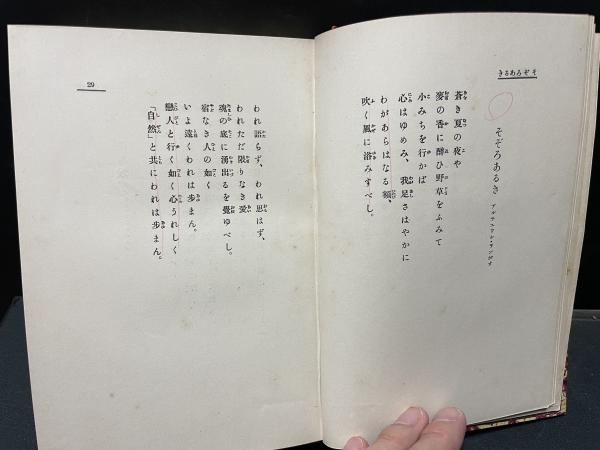 きるあろぞそ
そぞろあるき
アルチユウル・ランボオ
蒼き夏の夜や
麥の香に醉ひ野草をふみて
小みちを行かば
心はゆめみ、我足さはやかに
わがあらはなる額、
吹く風に浴みすべし。
われ語らず、われ思はず、
われただ限りなき愛
魂の底に湧出るを覺ゆべし。
宿なき人の如く
いよ遠くわれは歩まん。
戀人と行く如く心うれしく
「自然」と共にわれは歩まん。
29